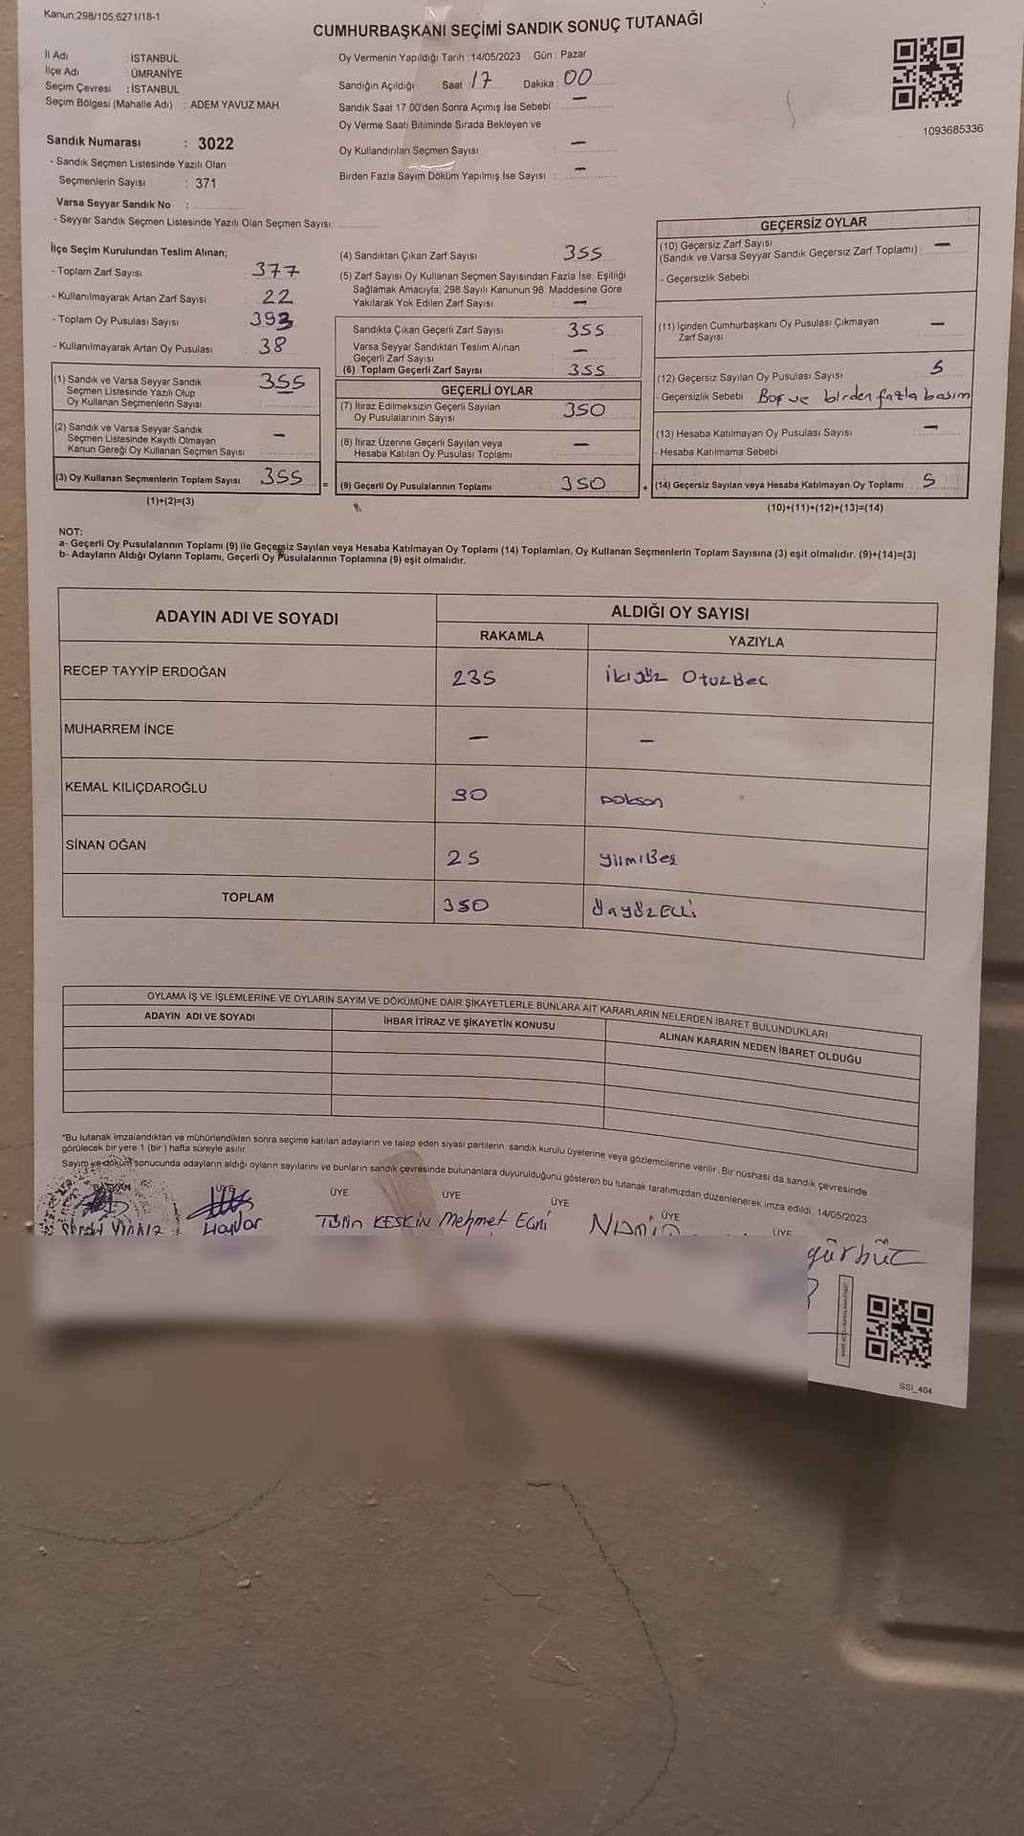 Kanun:298/105,6271/18-1
CUMHURBAŞKANI SEÇİMİ SANDIK SONUÇ TUTANAĞI
İl Adı : İSTANBUL
İlçe Adı : ÜMRANİYE
Seçim Çevresi : İSTANBUL
Seçim Bölgesi (Mahalle Adı) : ADEM YAVUZ MAH.
Oy Vermenin Yapıldığı Tarih :14/05/2023 Gün : Pazar
Sandığın Açıldığı Saat : 17 Dakika : 00
Sandık Saat 17:00'den Sonra Açımış İse Sebebi : —
Oy Verme Saati Bitiminde Sırada Bekleyen ve
Oy Kullandırılan Seçmen Sayısı : —
Birden Fazla Sayım Döküm Yapılmış İse Sayısı : —
1093685336
Sandık Numarası : 3022
- Sandık Seçmen Listesinde Yazılı Olan
Seçmenlerin Sayısı : 371
Varsa Seyyar Sandık No :
- Seyyar Sandık Seçmen Listesinde Yazılı Olan Seçmen Sayısı:
İlçe Seçim Kurulundan Teslim Alınan;
- Toplam Zarf Sayısı 377
- Kullanılmayarak Artan Zarf Sayısı 22
- Toplam Oy Pusulası Sayısı 393
- Kullanılmayarak Artan Oy Pusulası 38
(1) Sandık ve Varsa Seyyar Sandık
Seçmen Listesinde Yazılı Olup
Oy Kullanan Seçmenlerin Sayısı 355
(2) Sandık ve Varsa Seyyar Sandık
Seçmen Listesinde Kayıtlı Olmayan
Kanun Gereği Oy Kullanan Seçmen Sayısı —
(3) Oy Kullanan Seçmenlerin Toplam Sayısı 355 =
(1)+(2)=(3)
(4) Sandıktan Çıkan Zarf Sayısı 355
(5) Zarf Sayısı Oy Kullanan Seçmen Sayısından Fazla İse, Eşitliği
Sağlamak Amacıyla, 298 Sayılı Kanunun 98. Maddesine Göre
Yakılarak Yok Edilen Zarf Sayısı —
Sandıkta Çıkan Geçerli Zarf Sayısı 355
Varsa Seyyar Sandıktan Teslim Alınan
Geçerli Zarf Sayısı —
(6) Toplam Geçerli Zarf Sayısı 355
GEÇERLİ OYLAR
(7) İtiraz Edilmeksizin Geçerli Sayılan
Oy Pusulalarının Sayısı 350
(8) İtiraz Üzerine Geçerli Sayılan veya
Hesaba Katılan Oy Pusulası Toplamı —
(9) Geçerli Oy Pusulalarının Toplamı 350 +
GEÇERSİZ OYLAR
(10) Geçersiz Zarf Sayısı
(Sandık ve Varsa Seyyar Sandık Geçersiz Zarf Toplamı) —
- Geçersizlik Sebebi :
(11) İçinden Cumhurbaşkanı Oy Pusulası Çıkmayan
Zarf Sayısı —
(12) Geçersiz Sayılan Oy Pusulası Sayısı 5
- Geçersizlik Sebebi Boş ve birden fazla basım
(13) Hesaba Katılmayan Oy Pusulası Sayısı —
- Hesaba Katılmama Sebebi
(14) Geçersiz Sayılan veya Hesaba Katılmayan Oy Toplamı : 5
(10)+(11)+(12)+(13)=(14)
NOT:
a- Geçerli Oy Pusulalarının Toplamı (9) ile Geçersiz Sayılan veya Hesaba Katılmayan Oy Toplamı (14) Toplamları, Oy Kullanan Seçmenlerin Toplam Sayısına (3) eşit olmalıdır. (9)+(14)=(3)
b- Adayların Aldığı Oyların Toplamı, Geçerli Oy Pusulalarının Toplamına (9) eşit olmalıdır.
ADAYIN ADI VE SOYADI ALDIĞI OY SAYISI
RAKAMLA YAZIYLA
RECEP TAYYİP ERDOĞAN 235 ikiyüz OtuzBeş
MUHARREM İNCE — —
KEMAL KILIÇDAROĞLU 90 Doksan
SİNAN OĞAN 25 YirmiBeş
TOPLAM 350 ÜçyüzElli
OYLAMA İŞ VE İŞLEMLERİNE VE OYLARIN SAYIM VE DÖKÜMÜNE DAİR ŞİKAYETLERLE BUNLARA AİT KARARLARIN NELERDEN İBARET BULUNDUKLARI
ADAYIN ADI VE SOYADI İHBAR İTİRAZ VE ŞİKAYETİN KONUSU ALINAN KARARIN NEDEN İBARET OLDUĞU
*Bu tutanak imzalandıktan ve mühürlendikten sonra seçime katılan adayların ve talep eden siyasi partilerin sandık kurulu üyelerine veya gözlemcilerine verilir. Bir nüshası da sandık çevresinde
görülecek bir yere 1 (bir) hafta süreyle asılır.
Sayım ve döküm sonucunda adayların aldığı oyların sayılarını ve bunların sandık çevresinde bulunanlara duyurulduğunu gösteren bu tutanak tarafımızdan düzenlenerek imza edildi. 14/05/2023
BAŞKAN ÜYE ÜYE ÜYE ÜYE ÜYE ÜYE
Haydar KESKİN Mehmet
gürbüz
SSI_404